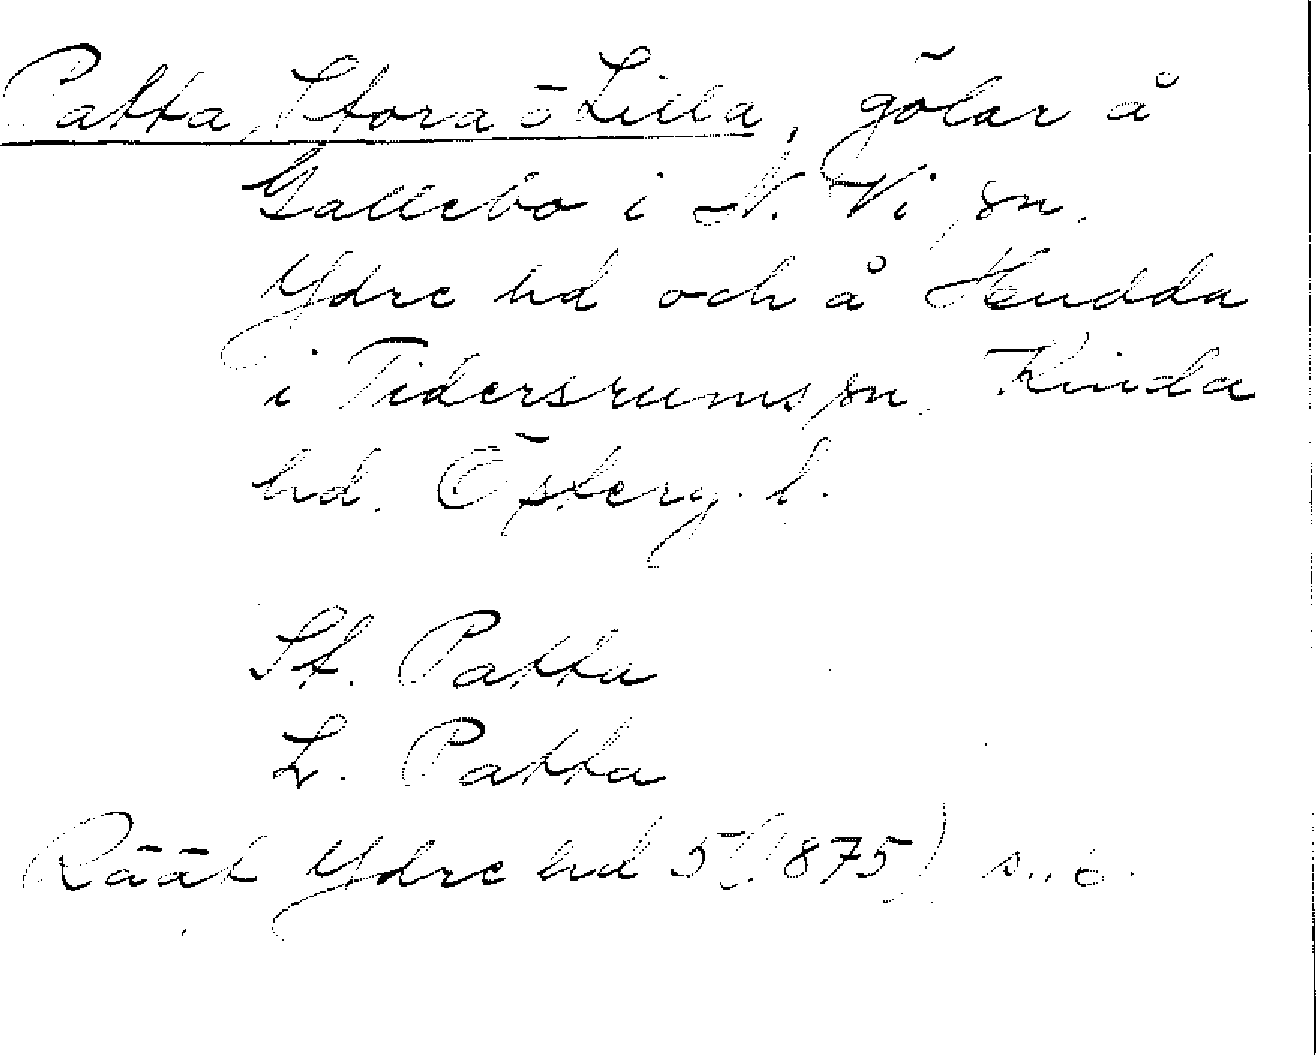 Patta, Stora o Lilla, gölar å
Gallebo i N. Vi sn.
Ydre hd och å Hudda
i Tidersrums sn, Kinda
hd. Österg. l.
St. Patta
L. Patta
Rääf Ydre hd 5 (1875) s. 6.